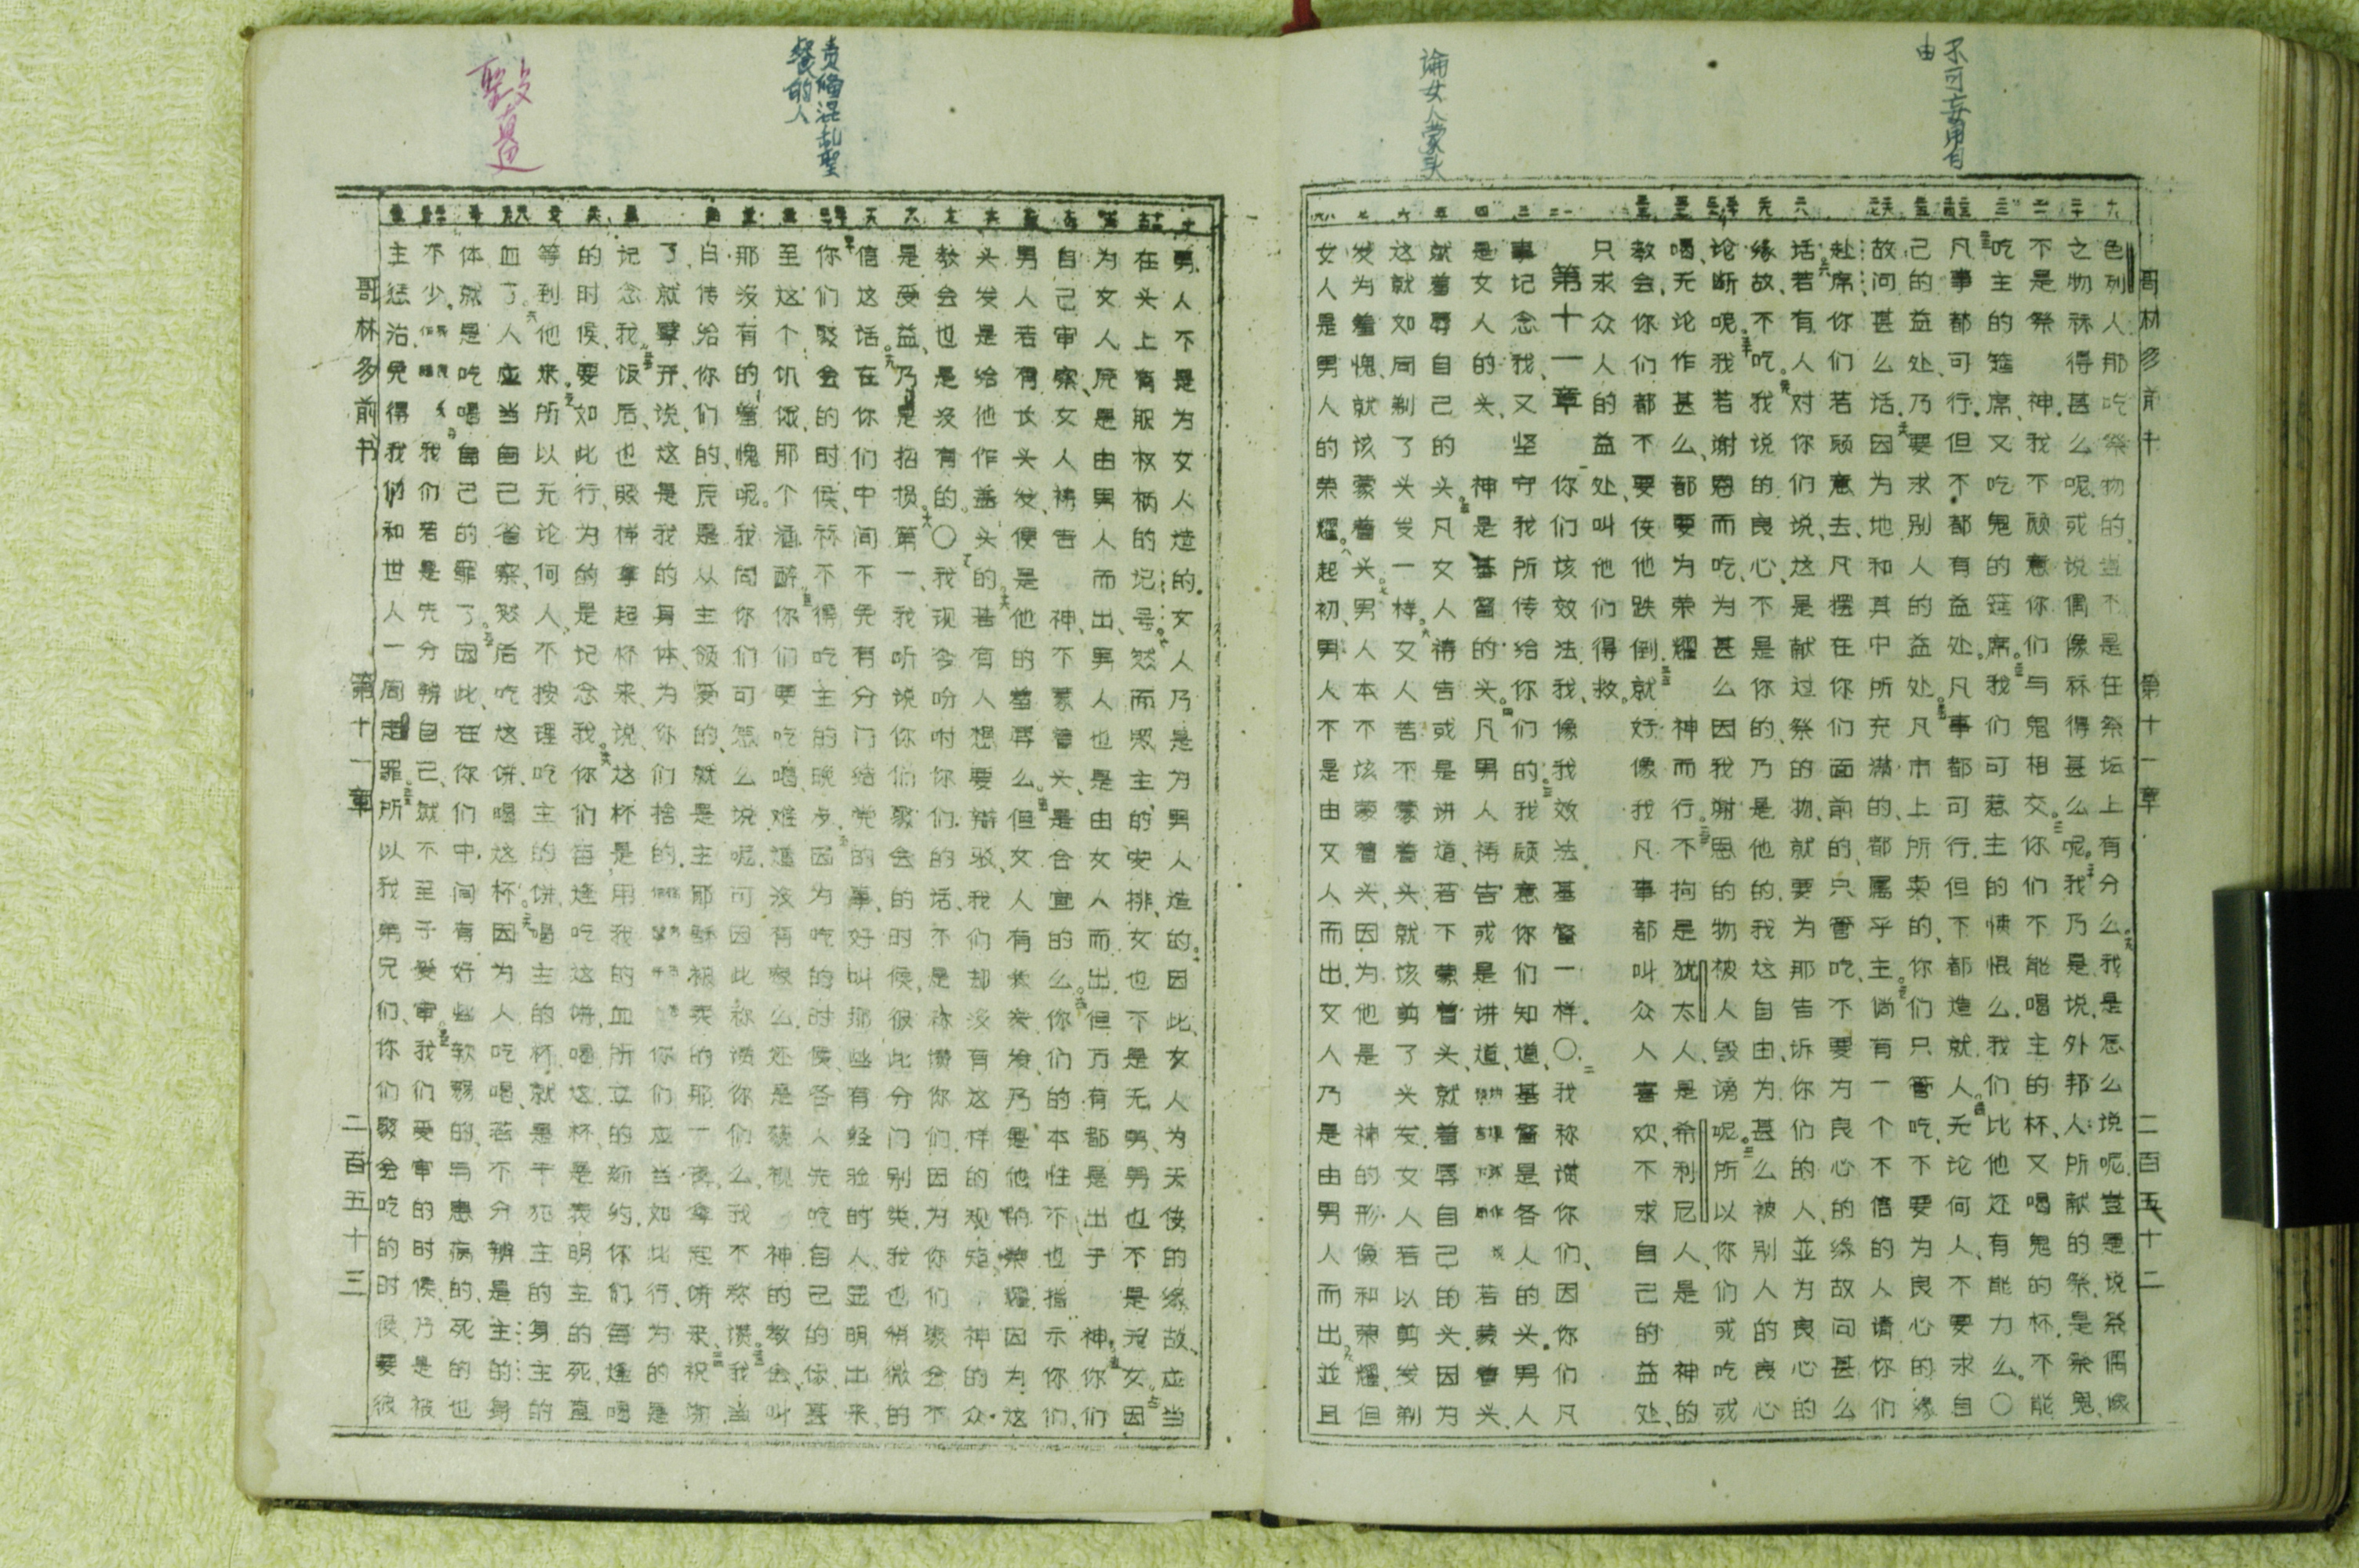 不可妄用自
由
論女人蒙头
哥林多前书 第十一章 二百五十二
色列人那吃祭物的豈不是在祭坛上有分么。我是怎么说呢豈是说祭偶像
之物祘得甚么呢或说偶像祘得甚么呢。我乃是说外邦人所献的祭是祭鬼
不是祭 神我不愿意你们与鬼相交。你们不能喝主的杯、又喝鬼的杯不能
吃主的筵席、又吃鬼的筵席。我们可惹主的愤恨么。我们比他还有能力么。〇
凡事都可行.但不都有益处。凡事都可行.但不都造就人。无论何人、不要求自
己的益处、乃要求别人的益处。凡市上所卖的、你们只管吃、不要为良心的缘
故问甚么话.因为地和其中所充满的、都属乎主。倘有一个不信的人请你们
赴席、你们若愿意去、凡摆在你们面前的、只管吃、不要为良心的缘故问甚么
话。若有人对你们说、这是献过祭的物、就要为那告诉你们的人、並为良心的
缘故、不吃。我说的良心、不是你的、乃是他的.我这自由、为甚么被别人的良心
论断呢。我若谢恩而吃、为甚么因我谢恩的物被人毁谤呢。所以你们或吃或
喝、无论作甚么、都要为荣耀 神而行。不拘是犹太人、是希利尼人、是 神的
教会、你们都不要使他跌倒.就好像我凡事都叫众人喜欢、不求自己的益处、
只求众人的益处、叫他们得救。
第十一章
你们该效法我、像我效法基督一样。〇我称讚你们、因你们凡
事记念我、又坚守我所传给你们的。我愿意你们知道、基督是各人的头.男人
是女人的头. 神是基督的头。凡男人祷告或是讲道、若蒙着头、
就着辱自己的头。凡女人祷告或是讲道、若不蒙着头、就着辱自己的头因为
这就如同剃了头发一样。女人若不蒙着头、就该剪了头发女人若以剪发剃
发为着愧、就该蒙着头。男人本不该蒙着头、因为他是 神的形像和荣耀、但
女人是男人的荣耀。起初男人不是由女人而出.女人乃是由男人而出.並且
责备混乱聖
餐的人
男人不是为女人造的.女人乃是为男人造的。因此、女人为天使的缘故、应当
在头上有服权柄的记号。然而照主的安排、女也不是无男、男也不是无女。因
为女人原是由男人而出、男人也是由女人而出.但万有都是出于 神。你们
自己审察、女人祷告 神、不蒙着头、是合宜的么。你们的本性不也指示你们、
男人若有长头发、便是他的着辱么。但女人有长头发、乃是他的荣耀因为这
头发是给他作盖头的。若有人想要辩驳、我们却没有这样的规矩、 神的众
教会也是没有的。〇我现今吩咐你们的话、不是称讚你们.因为你们聚会不
是受益、乃是招损。第一、我听说你们聚会的时候、彼此分门别类.我也稍微的
信这话。在你们中间不免有分门结党的事、好叫那些有经验的人、显明出来。
你们聚会的时候、祘不得吃主的晚歺.因为吃的时候、各人先吃自己的饭、甚
至这个饥饿、那个酒醉。你们要吃喝、难道没有家么.还是藐视 神的教会、叫
那没有的着愧呢。我向你们可怎么说呢.可因此称讚你们么.我不称讚。我当
日传给你们的、原是从主领受的、就是主耶稣被卖的那一夜、拿起饼来、祝谢
了、就擘开、说、这是我的身体、为你们捨的.你们应当如此行、为的是
记念我。饭后、也照样拿起杯来、说、这杯是用我的血所立的新约.你们每逢喝
的时候、要如此行、为的是记念我。你们每逢吃这饼、喝这杯、是表明主的死、直
等到他来。所以无论何人、不按理吃主的饼、喝主的杯、就是干犯主的身主的
血了。人应当自己省察、然后吃这饼、喝这杯。因为人吃喝、若不分辨是主的身
体、就是吃喝自己的罪了。因此、在你们中间有好些软弱的、与患病的、死的也
不少。我们若是先分辨自己、就不至于受审。我们受审的时候、乃是被
主惩治、免得我们和世人一同定罪。所以我弟兄们、你们聚会吃的时候、要彼
哥林多前书 第十一章 二百五十三